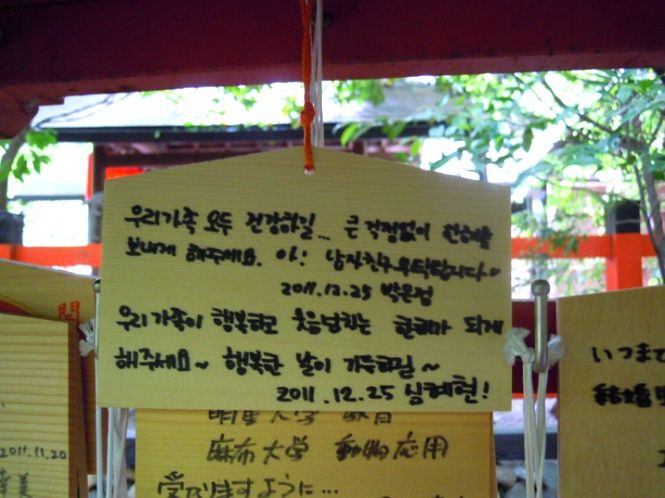 우리가족 모두 건강하길... 큰 걱정없이 한해를
보내게 해주세요. 아! 남자친구 부탁합니다
2011.12.25 박은정
우리 가족이 행복하고 웃음넘치는 한해가 되게
해주세요~ 행복한 날이 가득하길~
2011.12.25 심혜현!
明星大学 教育
麻布大学 動物応用
受かりますように...
2011.11.20
幸美
開
いつまで
結婚